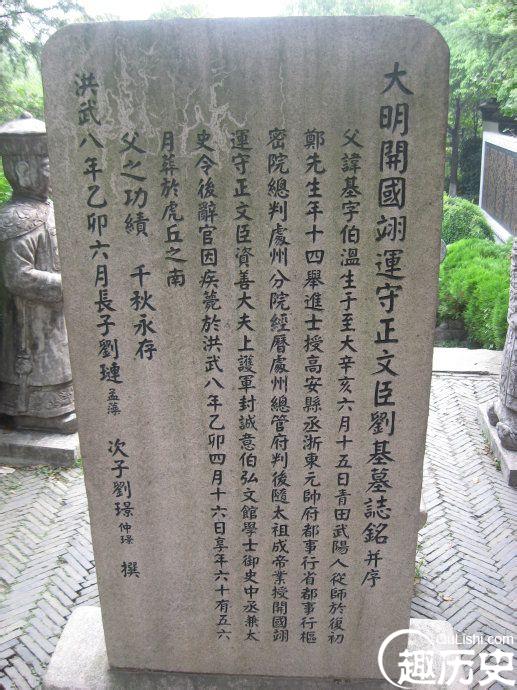 大明開國翊運守正文臣劉基墓誌銘并序
父諱基字伯溫生于至大辛亥六月十五日青田武陽人從師於復初
鄭先生年十四舉進士授高安縣丞浙東元帥府都事行省都事行樞
密院總判處州分院經曆處州總管府判後隨太祖成帝業授開國翊
運守正文臣資善大夫上護軍封誠意伯弘文館學士御史中丞兼太
史令後辭官因疾薨於洪武八年乙卯四月十六日享年六十有五六
月葬於虎丘之南
父之功績 千秋永存
洪武八年乙卯六月長子劉璉孟藻 次子劉璟仲璟 撰
QuLishi.com
趣历史